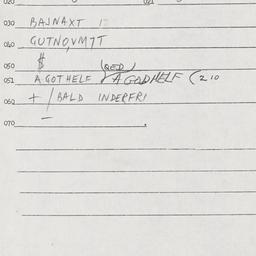 020 021
030 BAJNAXT
040 GUTNOVM7T
050 $ (QED)
051 AGOTHELF / AGODHELF (210
060 + / BALD INDERFRI
070 —